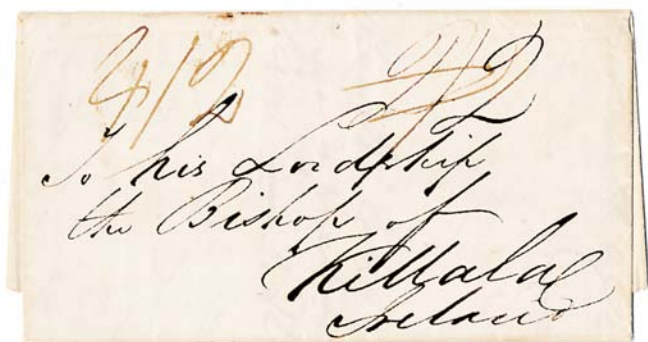 To his Lordship
the Bishop of
Killala
Ireland